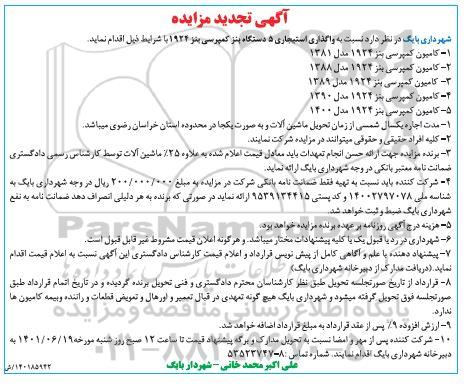 آگهی تجدید مزایده
شهرداری بایگ در نظر دارد نسبت به واگذاری استیجاری ۵ دستگاه بنز کمپرسی بنز ۱۹۲۴ با شرایط ذیل اقدام نماید.
۱- کامیون کمپرسی بنز ۱۹۲۴ مدل ۱۳۸۱
۲- کامیون کمپرسی بنز ۱۹۲۴ مدل ۱۳۸۸
۳- کامیون کمپرسی بنز ۱۹۲۴ مدل ۱۳۸۹
۴- کامیون کمپرسی بنز ۱۹۲۴ مدل ۱۳۹۰
۵- کامیون کمپرسی بنز ۱۹۲۴ مدل ۱۴۰۰
۱- مدت اجاره یکسال شمسی از زمان تحویل ماشین آلات و به صورت یکجا در محدوده استان خراسان رضوی میباشد.
۲- کلیه افراد حقیقی و حقوقی میتوانند در مزایده شرکت نمایند.
۳- برنده مزایده جهت ارائه حسن انجام تعهدات باید معادل قیمت اعلام شده به علاوه ۲۵٪ ماشین آلات توسط کارشناس رسمی دادگستری
ضمانت نامه معتبر بانکی در وجه شهرداری بایگ ارائه نماید.
۴- شرکت کننده باید نسبت به تهیه فقط ضمانت نامه بانکی شرکت در مزایده به مبلغ ۲۰۰/۰۰۰/۰۰۰ ریال در وجه شهرداری بایگ به
شناسه ملی ۱۴۰۰۲۷۹۷۰۷۸ و کد پستی ۹۵۳۹۱۳۴۴۱۵ ارائه نماید در صورتی که برنده به هر دلیلی انصراف دهد ضمانت نامه به نفع
شهرداری بایگ ضبط و ثبت خواهد شد.
۵- هزینه درج آگهی روزنامه بر عهده برنده مزایده خواهد بود.
۶- شهرداری در رد یا قبول یک یا کلیه پیشنهادات مختار میباشد. و هرگونه اعلان قیمت مشروط غیر قابل قبول است.
۷- پیشنهاد دهنده با علم و آگاهی کامل از پیش نویس قرارداد و اعلام قیمت کارشناس دادگستری این آگهی نسبت به اعلام قیمت اقدام
نماید. (دریافت مدارک از دبیرخانه شهرداری بایگ)
۸- قرارداد از تاریخ صورتجلسه تحویل طبق نظر کارشناسان محترم دادگستری و فنی تحویل برنده گردیده و در تاریخ اتمام قرارداد طبق
صورتجلسه فوق تحویل گرفته میشود و شهرداری بایگ هیچ گونه تعهدی در قبال تعمیر و اورهال و تعویض قطعات و راننده وبیمه کامیون ها
ندارد.
۹- ارزش افزوده ۹٪ پس از عقد قرارداد به مبلغ قرارداد اضافه خواهد شد.
۱۰- شرکت کننده پس از مهر و امضا نسبت به تحویل مدارک و برگه پیشنهاد قیمت تا ساعت ۱۲ صبح روز شنبه مورخه ۱۴۰۱/۰۶/۱۹ به
دبیرخانه شهرداری بایگ اقدام نمایند. شماره تماس :۸-۵۳۵۲۳۷۴۷
علی اکبر محمد خانی - شهردار بایگ
۱۴۰۱۸۵۹۴۲/ش